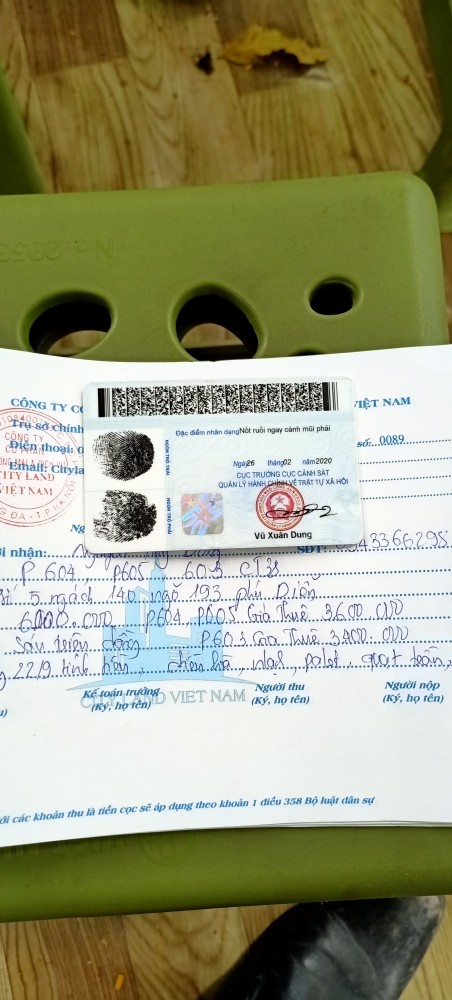 No 2055
CÔNG TY C
VIỆT NAM
Trụ sở chính
Điện thoại
số: 0089
Email: Cityla
CÔNG TY
CỔ PHẦN
CITY LAND
VIỆT NAM
ĐA - T.P HÀ NỘI
Đặc điểm nhân dạng Nốt ruồi ngay cánh mũi phải
NGÓN TRỎ TRÁI
NGÓN TRỎ PHẢI
Ngày 26 tháng 02 năm 2020
CỤC TRƯỞNG CỤC CẢNH SÁT
QUẢN LÝ HÀNH CHÍNH VỀ TRẬT TỰ XÃ HỘI
Vũ Xuân Dung
i nhận: SĐT: 43366295
P 604, P605 603 CT
5 ngách 140 ngõ 193 phú Diễn
6000.000 P604 P605 Giá Thuê 3600 000
Sáu triệu đồng P603 Giá Thuê 3400.000
22/9 tính tiền, điều hòa,
Kế toán trưởng Người thu Người nộp
(Ký, họ tên) (Ký, họ tên) (Ký, họ tên)
CITY LAND VIET NAM
ới các khoản thu là tiền cọc sẽ áp dụng theo khoản 1 điều 358 Bộ luật dân sự